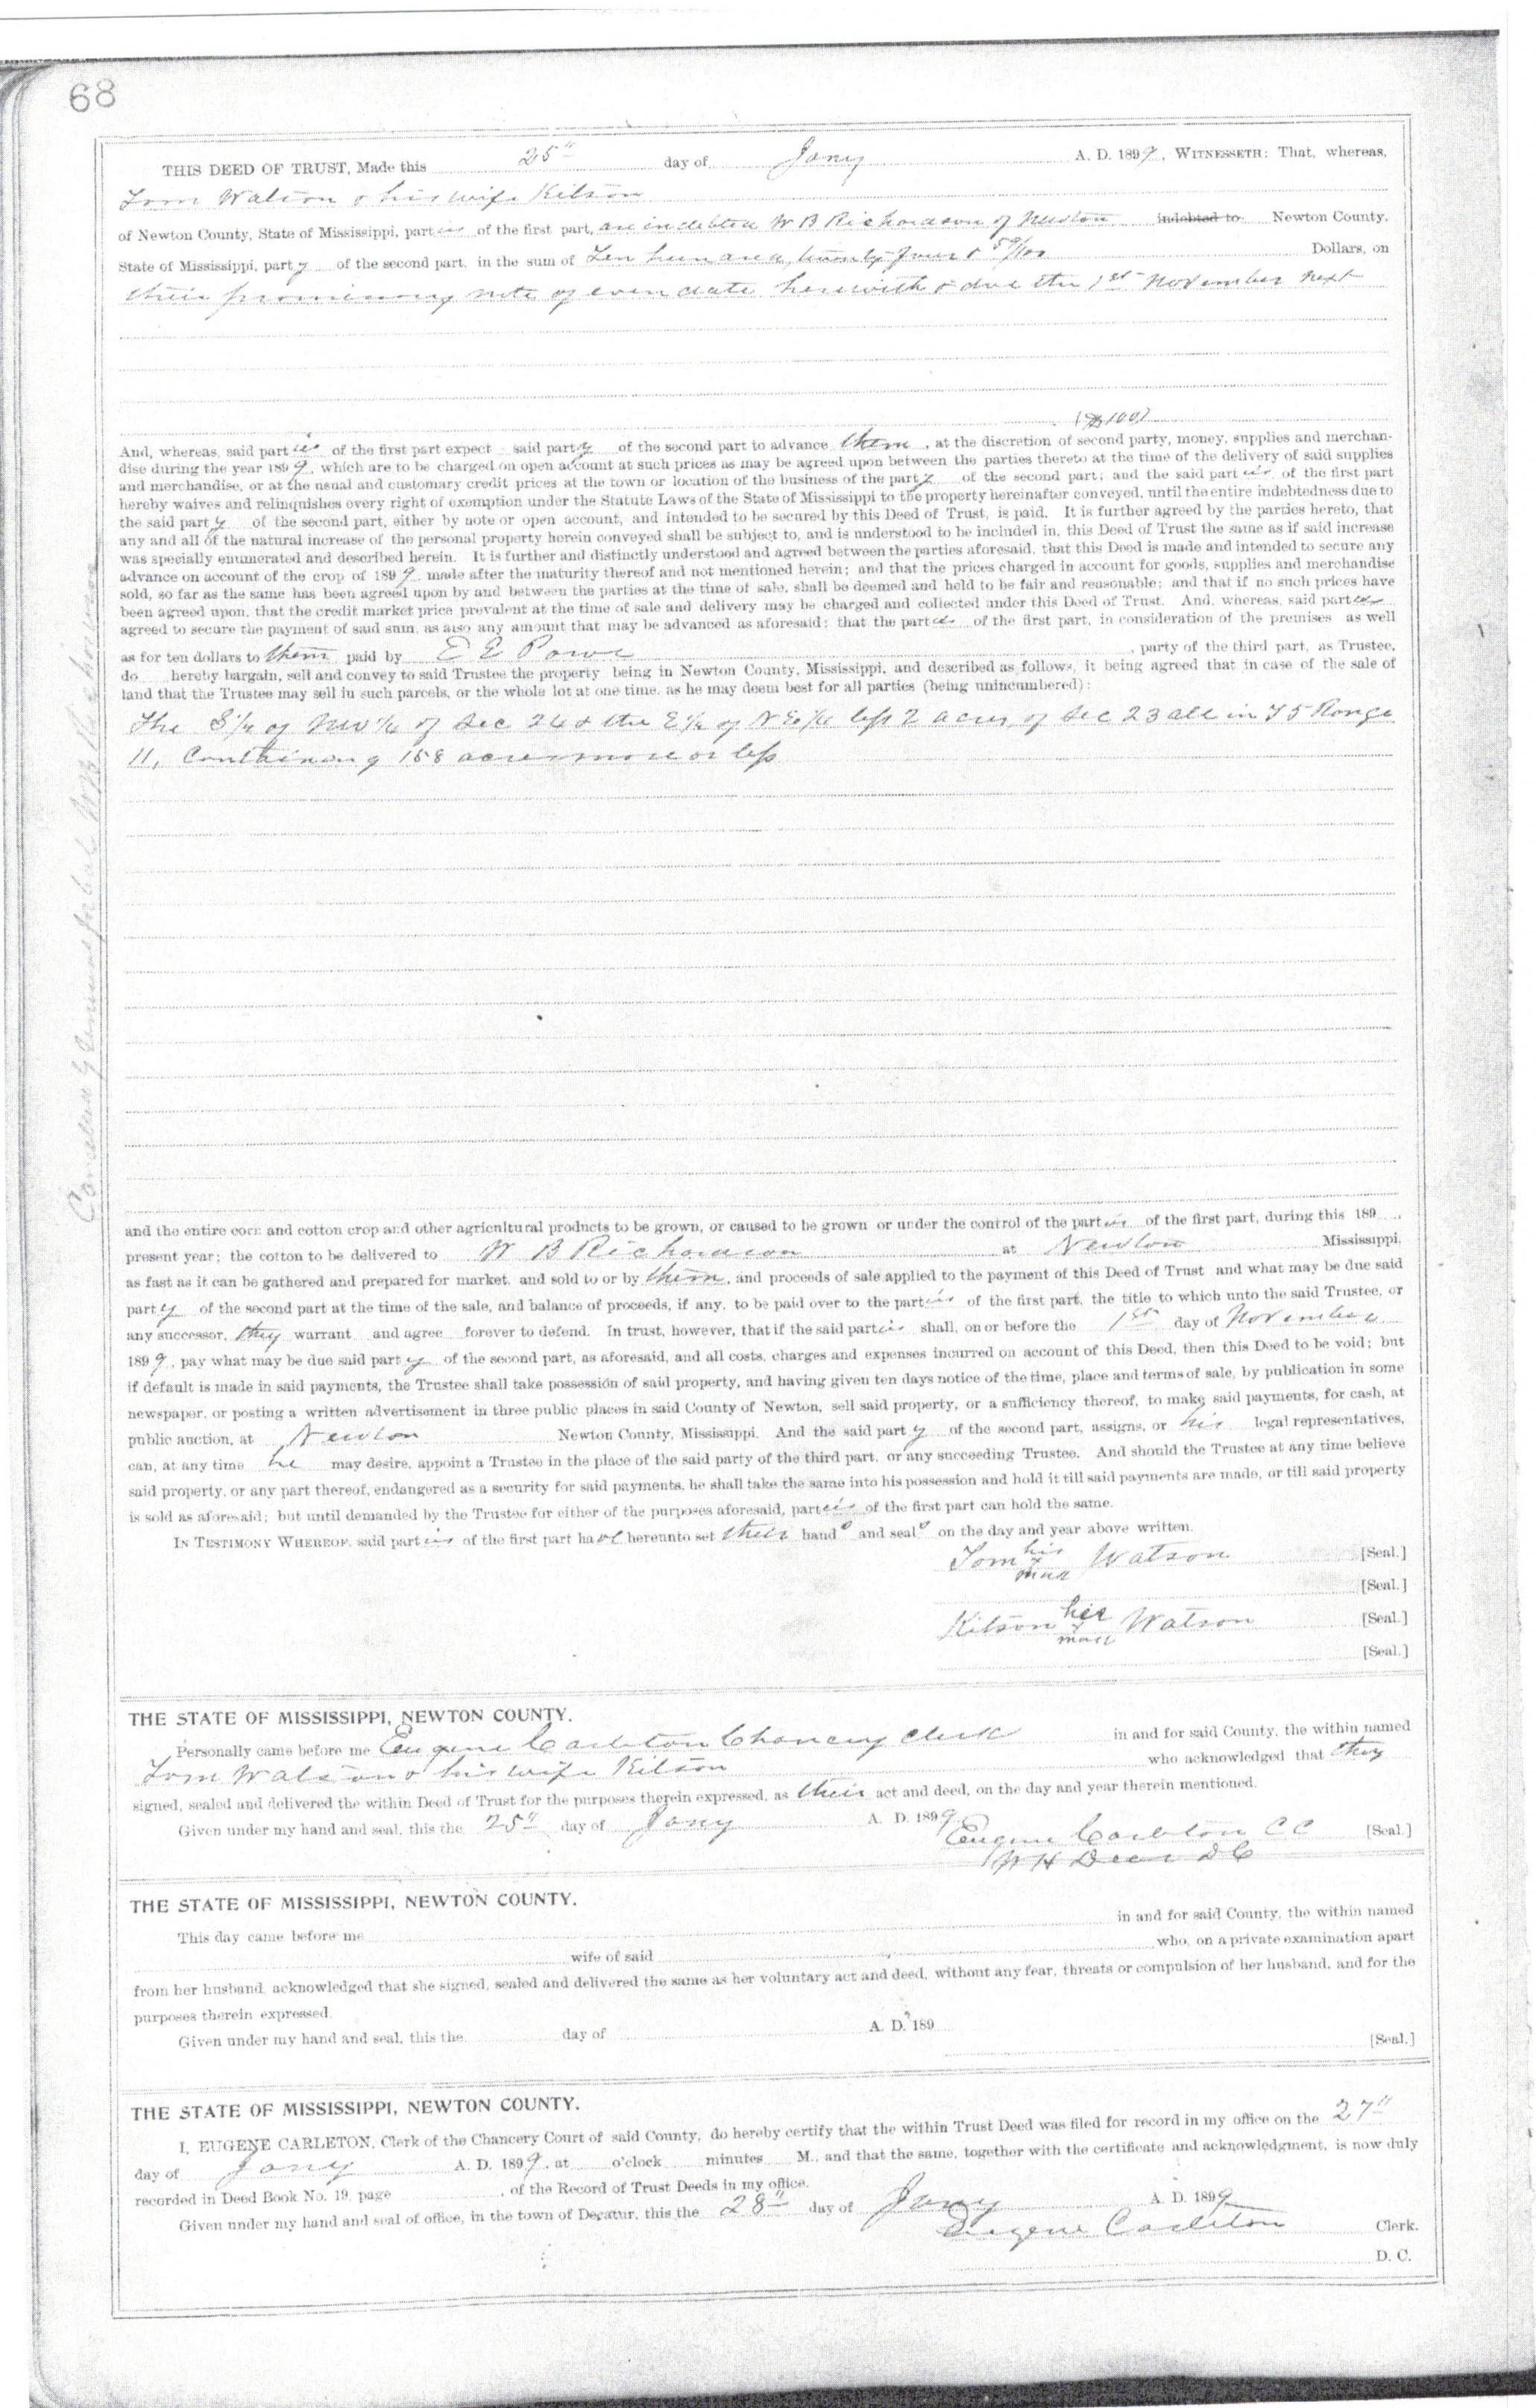 68
THIS DEED OF TRUST, Made this 25" day of Jany A. D. 1899, WITNESSETH: That, whereas,
Tom Watson & his wife Kitson
of Newton County, State of Mississippi, parties of the first part, are indebted W B Richardson of Newton indebted to Newton County,
State of Mississippi, party of the second part, in the sum of Ten hundred twenty four & 50/100 Dollars, on
their promissory note of even date herewith & due the 1st November next
And, whereas, said parties of the first part expect said party of the second part to advance them, at the discretion of second party, money, supplies and merchan-
dise during the year 1899, which are to be charged on open account at such prices as may be agreed upon between the parties thereto at the time of the delivery of said supplies
and merchandise, or at the usual and customary credit prices at the town or location of the business of the party of the second part; and the said parties of the first part
hereby waives and relinquishes every right of exemption under the Statute Laws of the State of Mississippi to the property hereinafter conveyed, until the entire indebtedness due to
the said party of the second part, either by note or open account, and intended to be secured by this Deed of Trust, is paid. It is further agreed by the parties hereto, that
any and all of the natural increase of the personal property herein conveyed shall be subject to, and is understood to be included in, this Deed of Trust the same as if said increase
was specially enumerated and described herein. It is further and distinctly understood and agreed between the parties aforesaid, that this Deed is made and intended to secure any
advance on account of the crop of 1899 made after the maturity thereof and not mentioned herein; and that the prices charged in account for goods, supplies and merchandise
sold, so far as the same has been agreed upon by and between the parties at the time of sale, shall be deemed and held to be fair and reasonable; and that if no such prices have
been agreed upon, that the credit market price prevalent at the time of sale and delivery may be charged and collected under this Deed of Trust. And, whereas, said parties
agreed to secure the payment of said sum, as also any amount that may be advanced as aforesaid; that the parties of the first part, in consideration of the premises as well
as for ten dollars to them paid by E E Powe, party of the third part, as Trustee,
do hereby bargain, sell and convey to said Trustee the property being in Newton County, Mississippi, and described as follows, it being agreed that in case of the sale of
land that the Trustee may sell in such parcels, or the whole lot at one time, as he may deem best for all parties (being unincumbered):
The S ½ of NW ¼ of Sec 24 & the E ½ of NE ¼ less 2 acres of Sec 23 all in T 5 Range
11, Containing 158 acres more or less
and the entire corn and cotton crop and other agricultural products to be grown, or caused to be grown or under the control of the parties of the first part, during this 189 ,
present year; the cotton to be delivered to W B Richardson at Newton Mississippi,
as fast as it can be gathered and prepared for market, and sold to or by them, and proceeds of sale applied to the payment of this Deed of Trust and what may be due said
party of the second part at the time of the sale, and balance of proceeds, if any, to be paid over to the parties of the first part, the title to which unto the said Trustee, or
any successor, they warrant and agree forever to defend. In trust, however, that if the said parties shall, on or before the 1st day of November
1899, pay what may be due said party of the second part, as aforesaid, and all costs, charges and expenses incurred on account of this Deed, then this Deed to be void; but
if default is made in said payments, the Trustee shall take possession of said property, and having given ten days notice of the time, place and terms of sale, by publication in some
newspaper, or posting a written advertisement in three public places in said County of Newton, sell said property, or a sufficiency thereof, to make said payments, for cash, at
public auction, at Newton Newton County, Mississippi. And the said party of the second part, assigns, or his legal representatives,
can, at any time he may desire, appoint a Trustee in the place of the said party of the third part, or any succeeding Trustee. And should the Trustee at any time believe
said property, or any part thereof, endangered as a security for said payments, he shall take the same into his possession and hold it till said payments are made, or till said property
is sold as aforesaid; but until demanded by the Trustee for either of the purposes aforesaid, parties of the first part can hold the same.
IN TESTIMONY WHEREOF, said parties of the first part have hereunto set their hands and seals on the day and year above written.
Tom his x mark Watson [Seal.]
[Seal.]
Kitson her x mark Watson [Seal.]
[Seal.]
THE STATE OF MISSISSIPPI, NEWTON COUNTY.
Personally came before me Eugene Carleton Chancery Clerk in and for said County, the within named
Tom Watson & his wife Kitson who acknowledged that they
signed, sealed and delivered the within Deed of Trust for the purposes therein expressed, as their act and deed, on the day and year therein mentioned.
Given under my hand and seal, this the 25" day of Jany A. D. 1899
Eugene Carleton CC [Seal.]
D C
THE STATE OF MISSISSIPPI, NEWTON COUNTY.
This day came before me in and for said County, the within named
wife of said who, on a private examination apart
from her husband, acknowledged that she signed, sealed and delivered the same as her voluntary act and deed, without any fear, threats or compulsion of her husband, and for the
purposes therein expressed.
Given under my hand and seal, this the day of A. D. 189
[Seal.]
THE STATE OF MISSISSIPPI, NEWTON COUNTY.
I, EUGENE CARLETON, Clerk of the Chancery Court of said County, do hereby certify that the within Trust Deed was filed for record in my office on the 27"
day of Jany A. D. 1899, at o'clock minutes M., and that the same, together with the certificate and acknowledgment, is now duly
recorded in Deed Book No. 19, page , of the Record of Trust Deeds in my office.
Given under my hand and seal of office, in the town of Decatur, this the 28" day of Jany A. D. 1899
Eugene Carleton Clerk.
D. C.